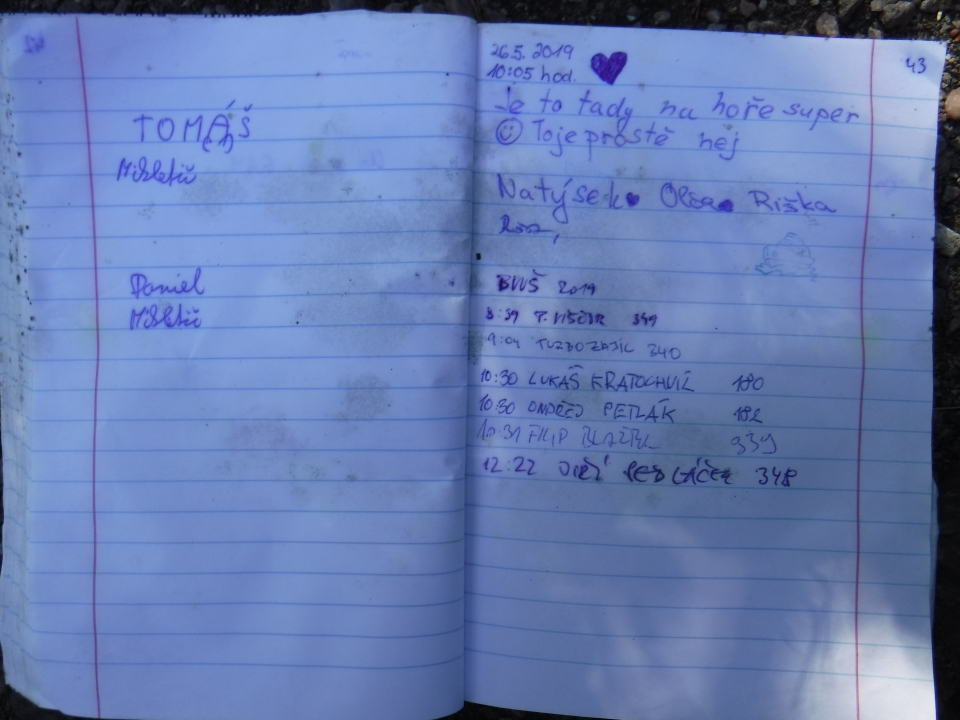 42
TOMÁŠ
Daniel
43
26.5. 2019
10:05 hod.
Je to tady na hoře super
To je prostě nej
Natýsek Olča Riška
BUŠ 2019
8:39 349
9:04 TURBOZAJÍC 340
10:30 LUKÁŠ KRATOCHVÍL 180
10:30 ONDŘEJ PETLÁK 182
10:31 FILIP 339
12:22 JIŘÍ SEDLÁČEK 348